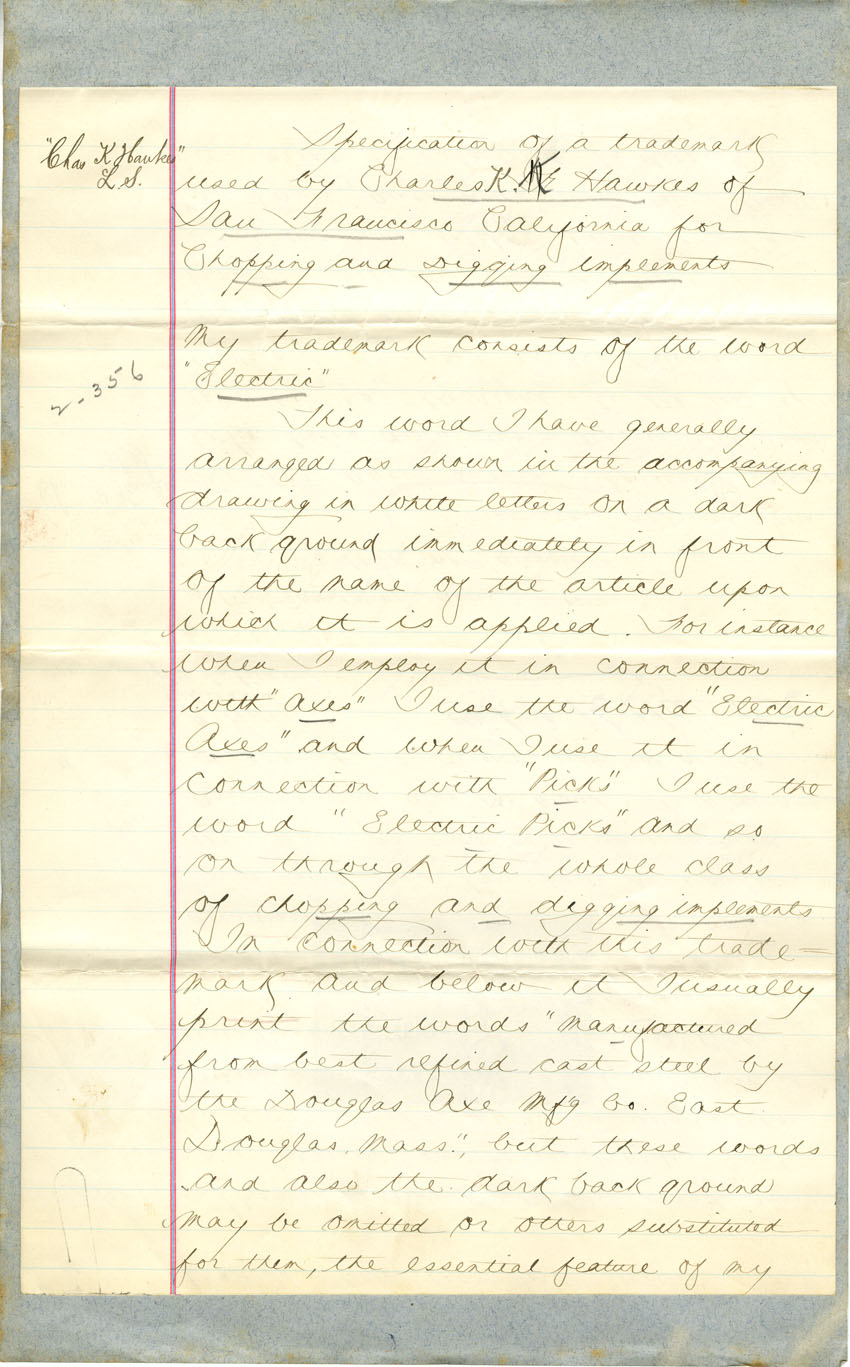 "Chas K Hawkes"
L.S.
2-356
Specification of a trademark
used by Charles K. Hawkes of
San Francisco California for
Chopping and Digging implements
My trademark consists of the word
"Electric"
This word I have generally
arranged as shown in the accompanying
drawing in white letters on a dark
back ground immediately in front
of the name of the article upon
which it is applied. For instance
when I employ it in connection
with "Axes" I use the word "Electric
Axes" and when I use it in
connection with "Picks" I use the
word "Electric Picks" and so
on through the whole class
of chopping and digging implements
In connection with this trade=
mark and below it I usually
print the words "Manufactured
from best refined cast steel by
the Douglas Axe Mfg Co. East
Douglas, Mass.", but these words
and also the dark back ground
may be omitted or others substituted
for them, the essential feature of my